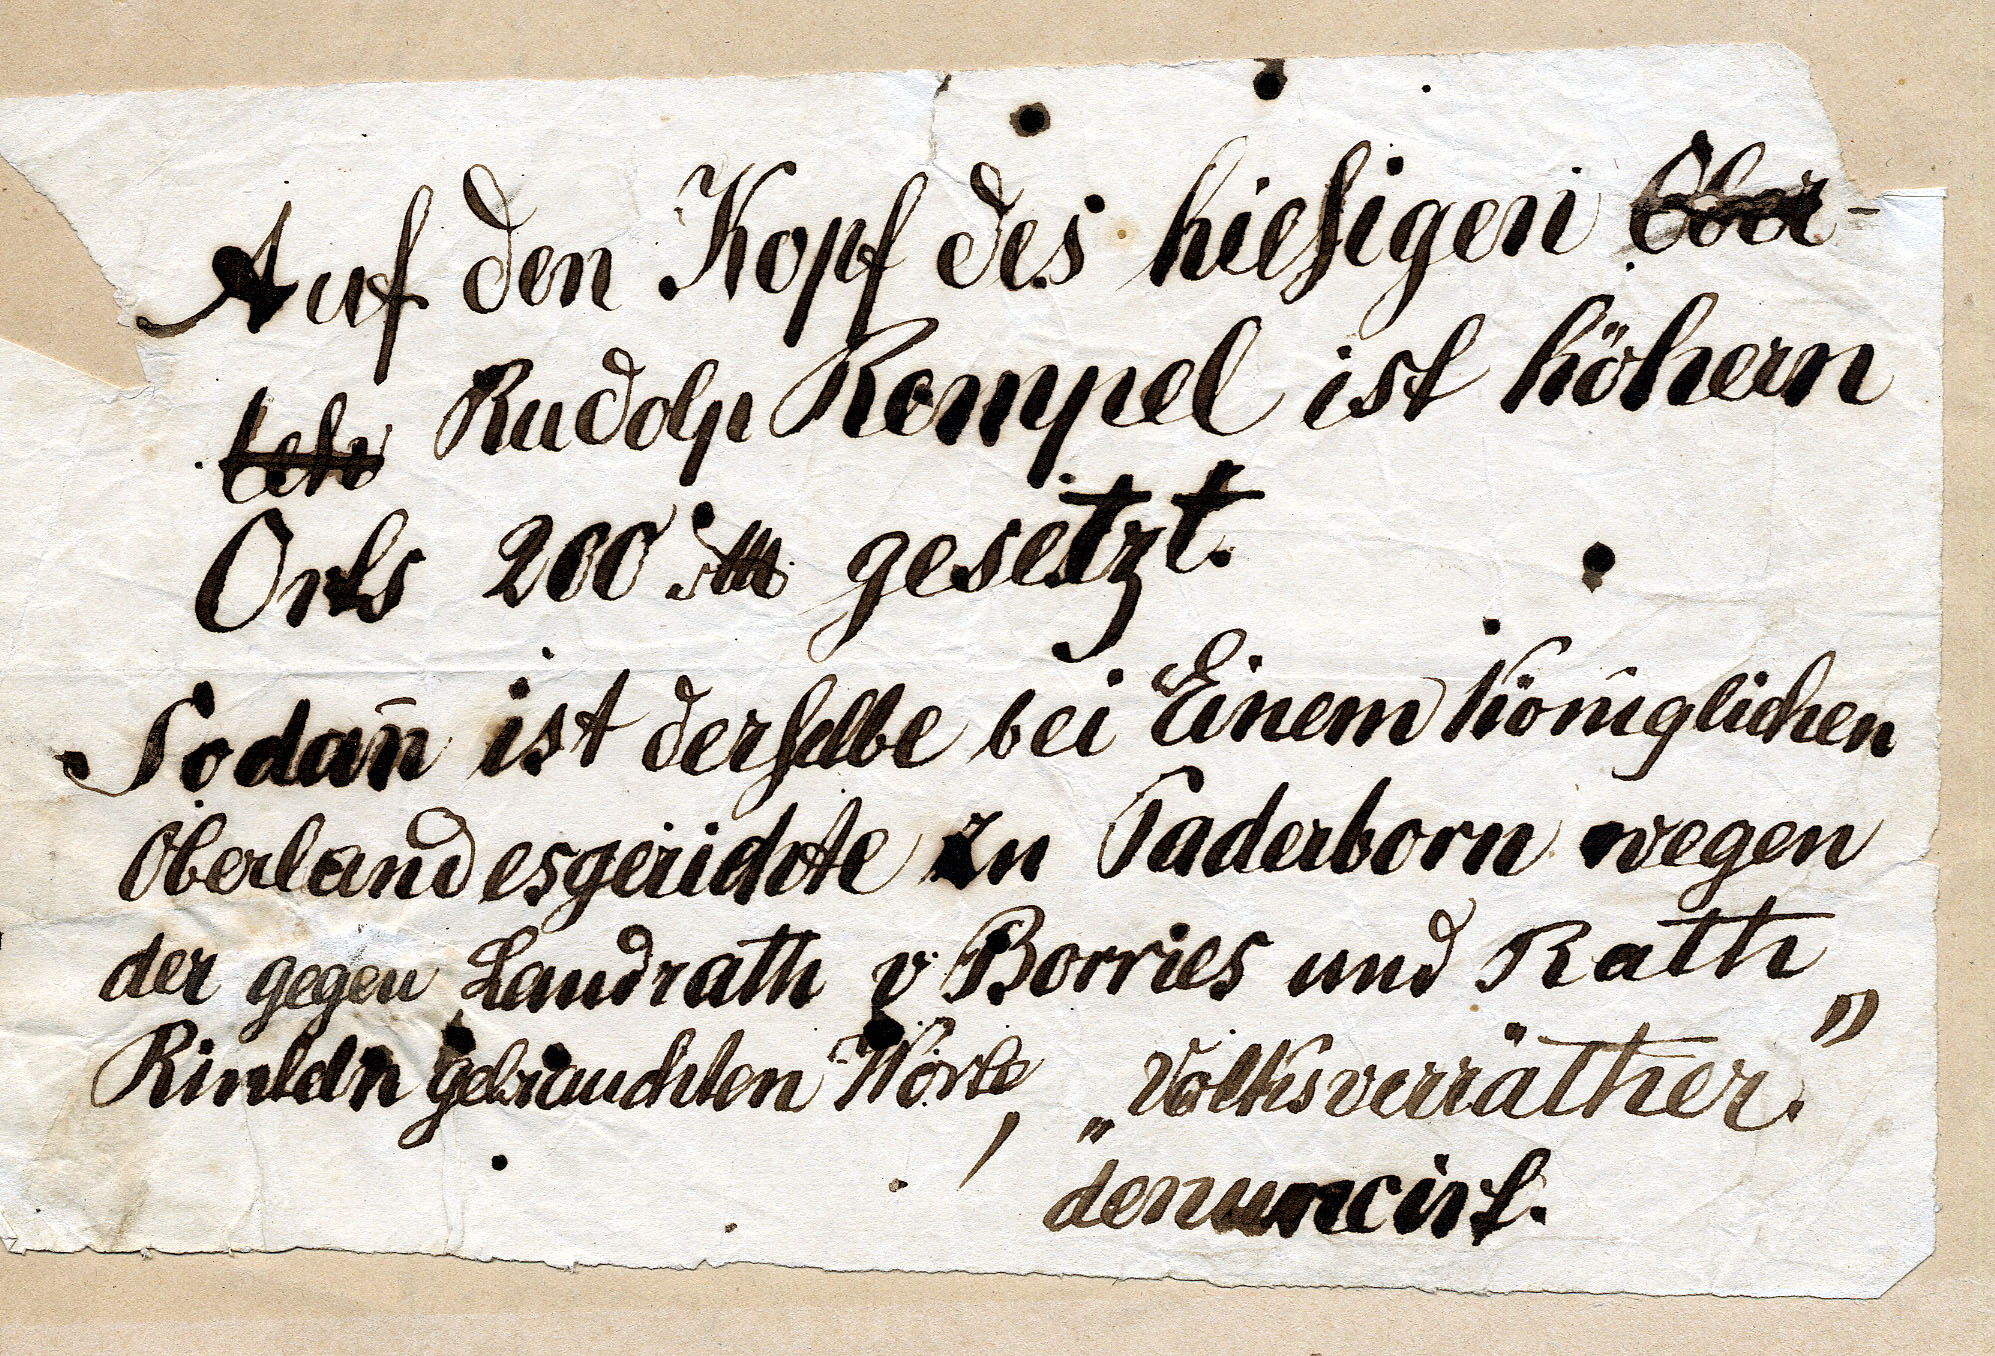 Auf den Kopf des hiesigen Ober-
lehr Rudolp Rempel ist höhern
Orts 200 gesetzt.
Sodan̄ ist derselbe bei Einem Königlichen
Oberlandesgerichte zu Paderborn wegen
der gegen Landrath v Borries und Rath
Rinteln gebrauchten Worte, „Volksverräther.”
denuncirt.